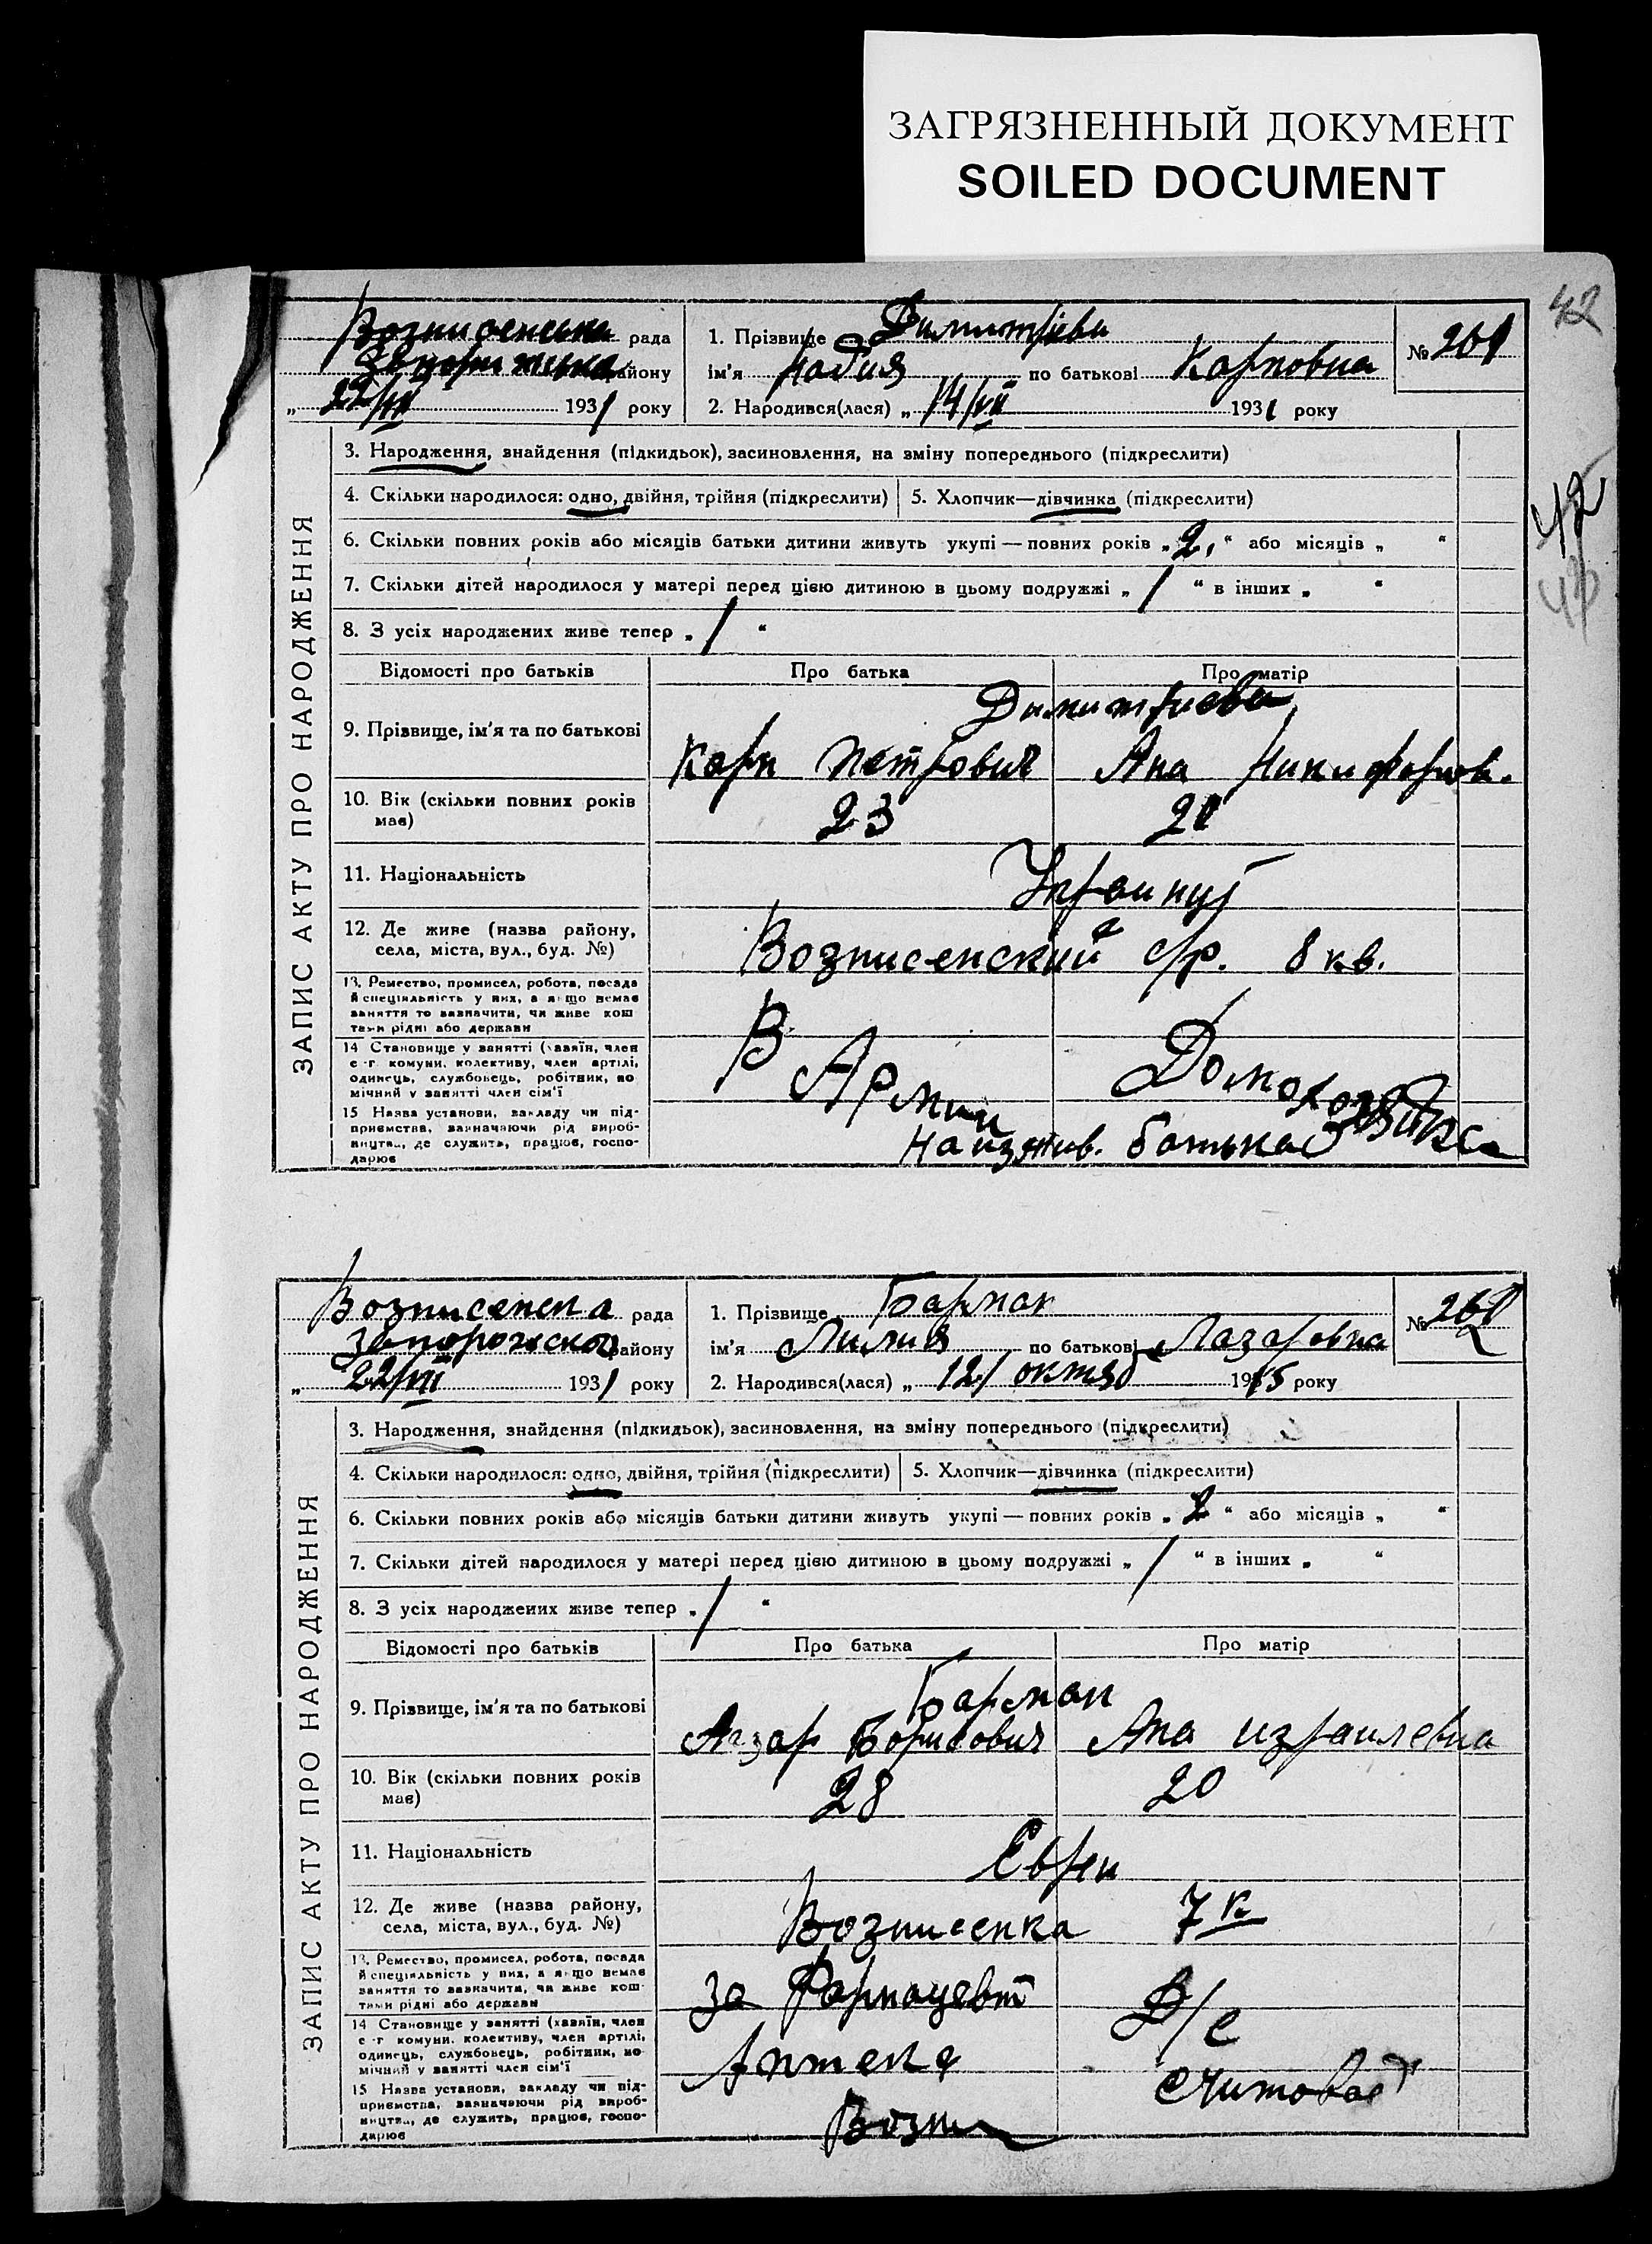 ЗАГРЯЗНЕННЫЙ ДОКУМЕНТ
SOILED DOCUMENT
42
42
Вознисенська рада
району
22/VII 1931 року
1. Прізвище
ім'я Надия по батькові Карповна
2. Народився(лася) „ 14/VII 1931 року
№ 261
ЗАПИС АКТУ ПРО НАРОДЖЕННЯ
3. Народження, знайдення (підкидьок), засиновлення, на зміну попереднього (підкреслити)
4. Скільки народилося: одно, двійня, трійня (підкреслити) 5. Хлопчик—дівчинка (підкреслити)
6. Скільки повних років або місяців батьки дитини живуть укупі — повних років „ 2 “ або місяців „ “
7. Скільки дітей народилося у матері перед цією дитиною в цьому подружжі „ 1 “ в інших „ “
8. З усіх народжених живе тепер „ 1 “
Відомості про батьків Про батька Про матір
9. Прізвище, ім'я та по батькові
Карп Петрович Ана Никифоров.
10. Вік (скільки повних років має)
23
11. Національність
12. Де живе (назва району, села, міста, вул., буд. №)
Вознисенский с/р. 8 кв.
13. Ремество, промисел, робота, посада й спеціяльність у них, а якщо немає заняття то зазначити, чи живе коштами рідні або держави
14 Становище у занятті (хазяїн, член с.-г. комуни, колективу, член артілі, одинець, службовець, робітник, помічний у занятті член сім'ї
15 Назва установи, закладу чи підприємства, зазначаючи рід виробництва, де служить, працює, господарює
В Армии
Домохозяйка
на иждив. батька
Вознисенска рада
району
22/VII 1931 року
1. Прізвище Барман
ім'я Лилия по батькові Лазаровна
2. Народився(лася) „ 12/ октяб року
№
ЗАПИС АКТУ ПРО НАРОДЖЕННЯ
3. Народження, знайдення (підкидьок), засиновлення, на зміну попереднього (підкреслити)
4. Скільки народилося: одно, двійня, трійня (підкреслити) 5. Хлопчик—дівчинка (підкреслити)
6. Скільки повних років або місяців батьки дитини живуть укупі — повних років „ 2 “ або місяців „ “
7. Скільки дітей народилося у матері перед цією дитиною в цьому подружжі „ 1 “ в інших „ “
8. З усіх народжених живе тепер „ 1 “
Відомості про батьків Про батька Про матір
9. Прізвище, ім'я та по батькові
Барман
Лазар Борисович Ана Израилевна
10. Вік (скільки повних років має)
28 20
11. Національність
Евреи
12. Де живе (назва району, села, міста, вул., буд. №)
Вознисенка 7 к
13. Ремество, промисел, робота, посада й спеціяльність у них, а якщо немає заняття то зазначити, чи живе коштами рідні або держави
14 Становище у занятті (хазяїн, член с.-г. комуни, колективу, член артілі, одинець, службовець, робітник, помічний у занятті член сім'ї
15 Назва установи, закладу чи підприємства, зазначаючи рід виробництва, де служить, працює, господарює
Фармацевт
Аптека